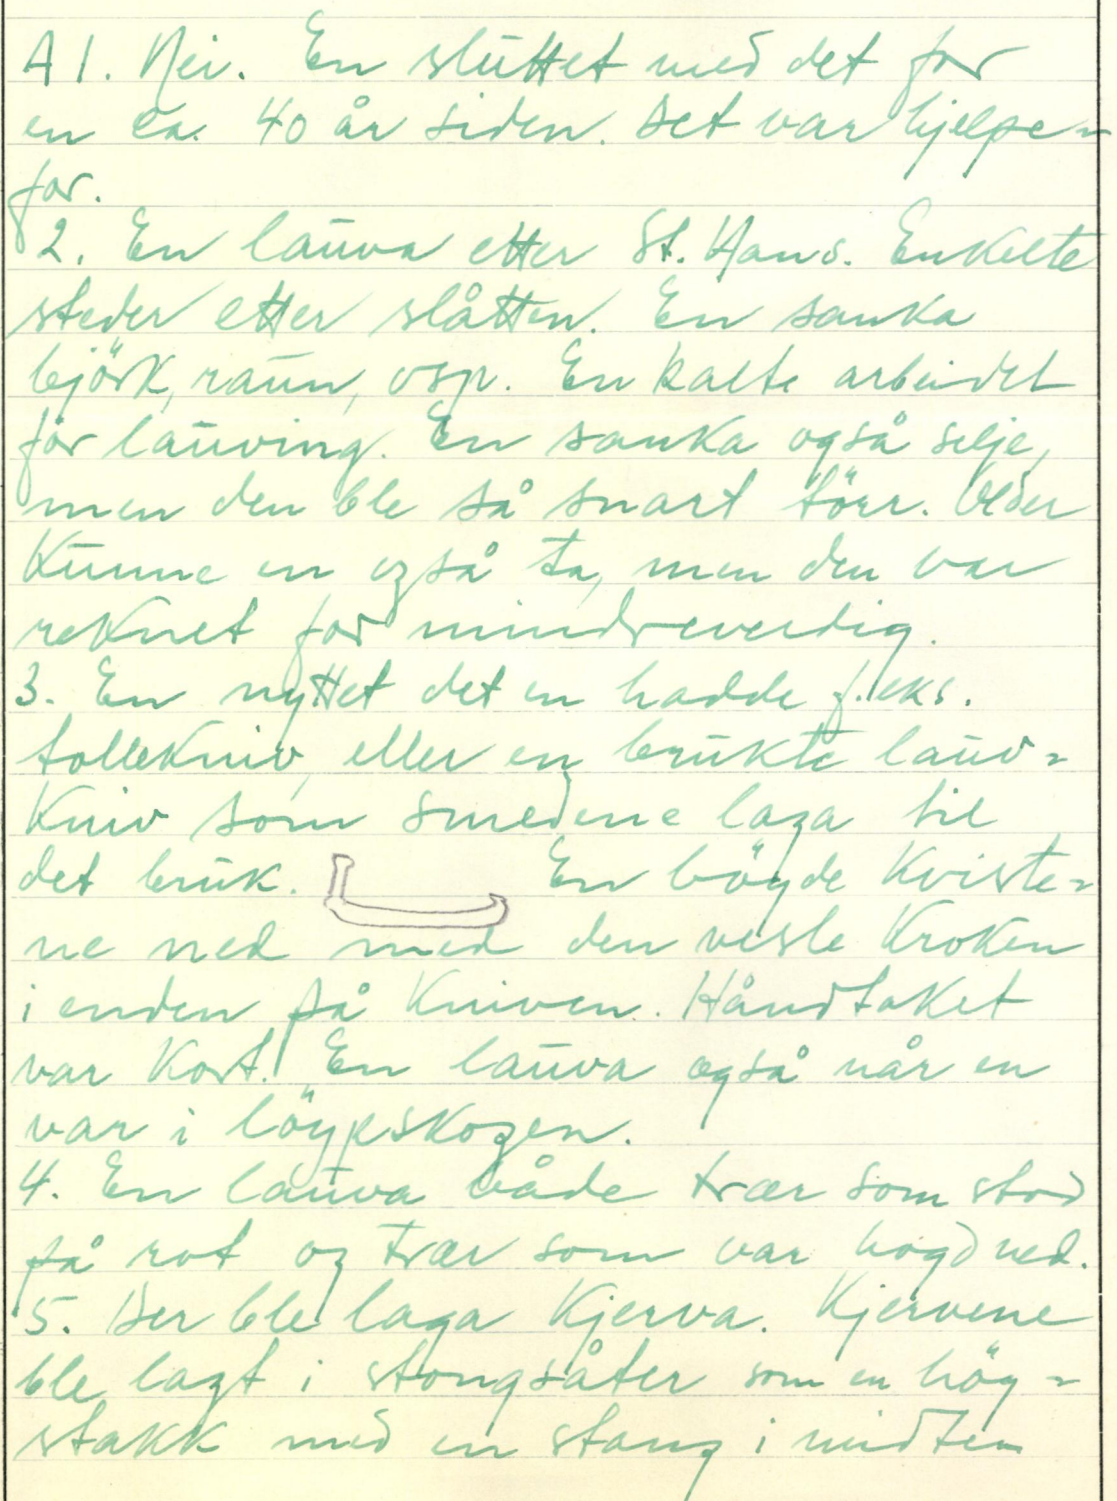 A 1. Nei. En sluttet med det for
en ca. 40 år siden. Det var hjelpe-
for.
2. En lauva etter St. Hans. Enkelte
steder etter slåtten. En sanka
björk, raun, osp. En kalte arbeidet
for lauving. En sanka også selje,
men den ble så snart törr. Older
kunne en også ta, men den var
reknet for mindreverdig.
3. En nyttet det en hadde f.eks.
tollekniv, eller en brukte lauv-
kniv som smedene laga til
det bruk. En böyde kviste-
ne ned med den vesle kroken
i enden på kniven. Håndtaket
var kort. En lauva også når en
var i löypskogen.
4. En lauva både trær som stod
på rot og trær som var hogd ned.
5. Der ble laga kjerva. Kjervene
ble lagt i stongsåter som en höy-
stakk med en stang i midten